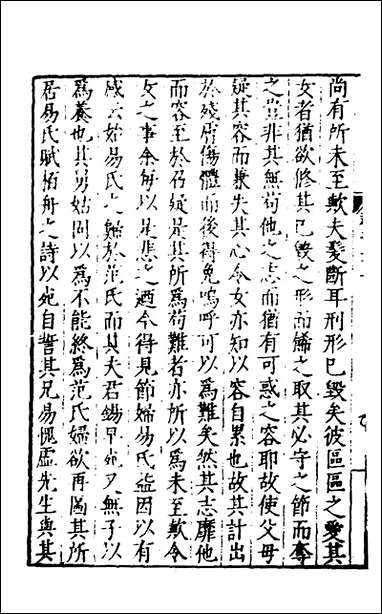 尚有所未至歟夫髮斷耳刑形已毀矣彼區區之愛其
女者猶欲修其已毀之形而歸之取其必守之節而奪
之豈非其無苟他之志而猶有可惑之容耶故使父母
疑其容而兼失其心令女亦知以容自累也故其計出
於殘唇傷體而後得免嗚呼可以為難矣然其志靡他
而容至於召疑是其所為苟難者亦所以為未至歟令
女之事余每以是悲之迺今得見節婦易氏盖因以有
感云始易氏之歸於范氏而其夫君錫早死又無子以
為養也其男姑固以為不能終為范氏婦欲再圖其所
居易氏賦栢舟之詩以死自誓其兄易愧虛先生與其